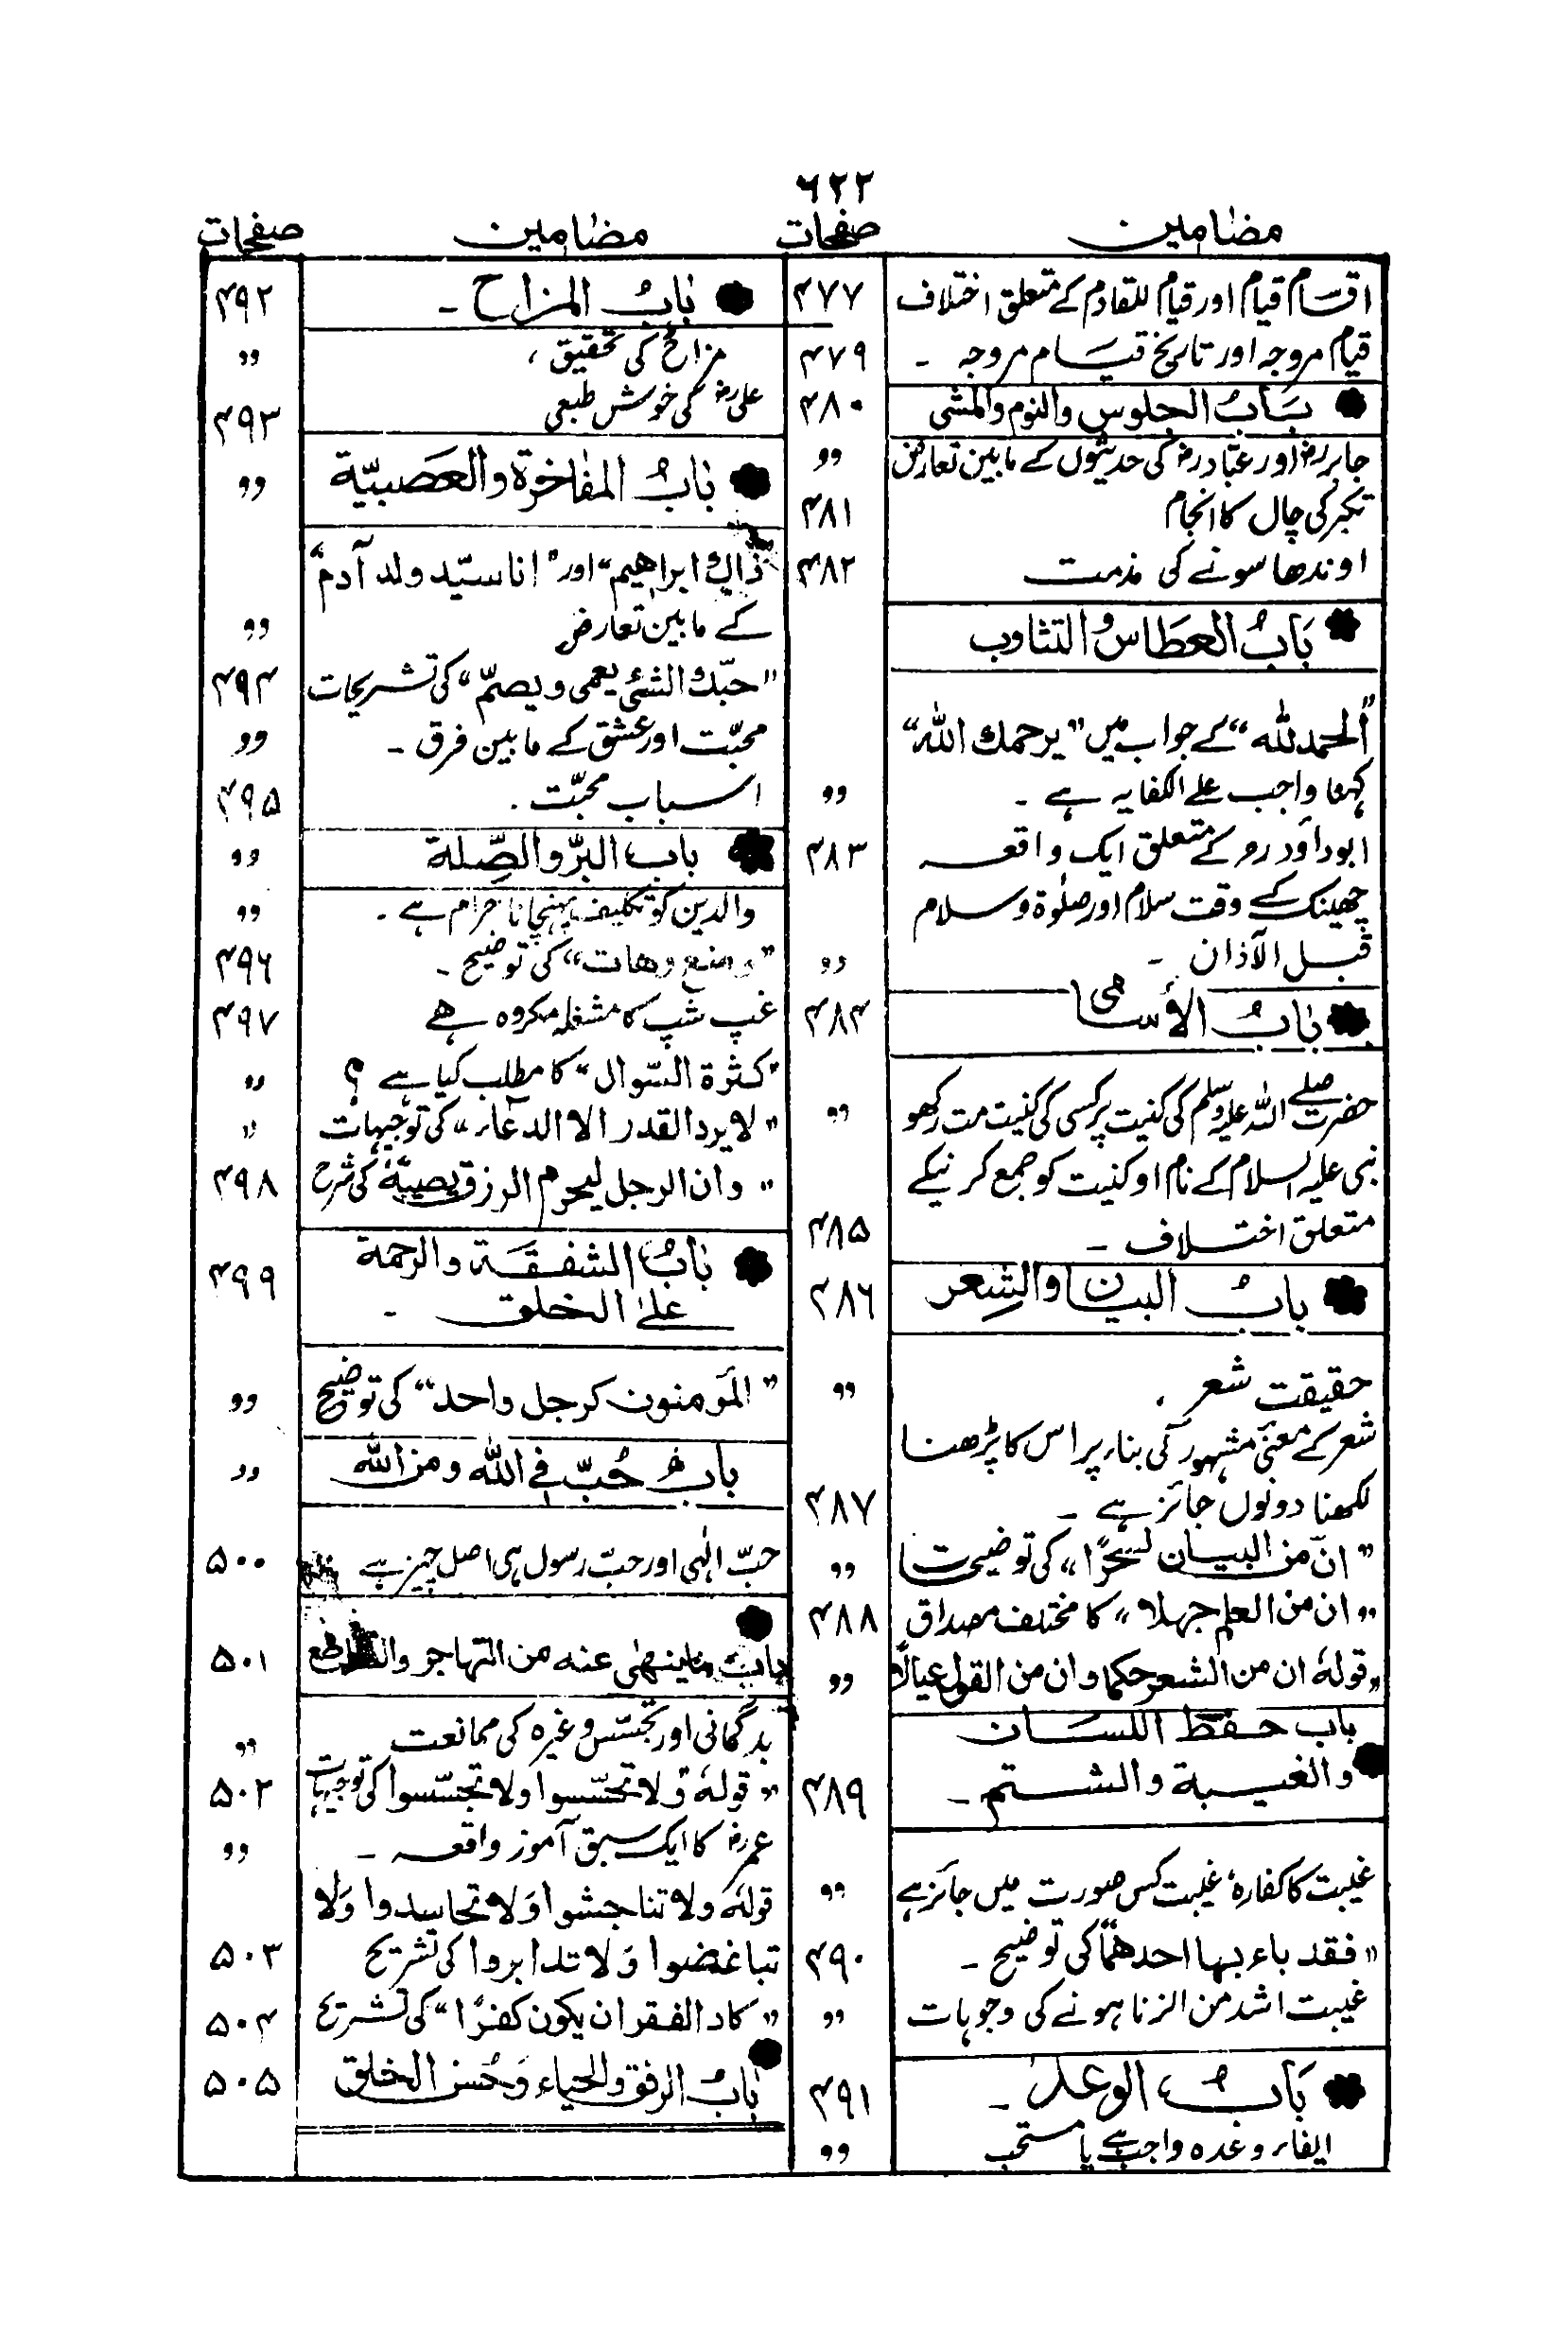 ۶۲۲
مضامین صفحات
اقسام قیام اور قیام للقادم کے متعلق اختلاف ۴۷۷
قیام مروجہ اور تاریخ قیام مروجہ ۔ ۴۷۹
بَابُ الجلوس والنوم والمشی ۴۸۰
جابرؓ اور عبّادؓ کی حدیثوں کے مابین تعارض ,,
تکبر کی چال کا انجام ۴۸۱
اوندھا سونے کی مذمت ۴۸۲
بَابُ العطَاس والتثاوب
"الحمدللہ" کے جواب میں "یرحمك اللہ"
کہنا واجب علے الکفایہ ہے ۔ ,,
ابوداؤدرح کے متعلق ایک واقعہ ۴۸۳
چھینک کے وقت سلام اور صلوٰۃ وسلام
قبل الآذان ۔ ,,
بَابُ الأسامی ۴۸۴
حضرت صلے اللہ علیہ وسلم کی کنیت پر کسی کی کنیت مت رکھو ,,
نبی علیہ السلام کے نام اوکنیت کو جمع کرنیکے
متعلق اختلاف ۔ ۴۸۵
بابُ البیان والشعر ۴۸۶
حقیقت شعر . ,,
شعر کے معنیٰ مشہور کی بناء پر اس کا پڑھنا
لکھنا دونوں جائز ہے ۔ ۴۸۷
"انّ من البیان لسحرًا" کی توضیحات ,,
"ان من العلم جہلا" کا مختلف مصداق ۴۸۸
"قولہٗ ان من الشعر حکما وان من القول عیالًا ,,
باب حفظ اللسان
والغیبة والشتم ۔ ۴۸۹
غیبت کا کفارہ غیبت کس صورت میں جائز ہے ,,
"فقد باء بہا احدھما" کی توضیح ۔ ۴۹۰
غیبت اشد من الزنا ہونے کی وجوہات ,,
بَابُ الوعد ۔ ۴۹۱
ایفاء وعدہ واجب ہے یا مستحب ,,
مضامین صفحات
بَابُ المزاح ۔ ۴۹۲
مزاح کی تحقیق ، ,,
علیؓ کی خوش طبعی ۴۹۳
بَابُ المفاخرة والعصبیّة ,,
ذاك ابراہیم" اور "انا سیّد ولد آدم"
کے مابین تعارض ,,
"حبّك الشئی یعمی ویصمّ" کی تشریحات ۴۹۴
محبّت اور عشق کے مابین فرق ۔ ,,
اسباب محبّت . ۴۹۵
باب البرّ والصِّلة ,,
والدین کو تکلیف پہنچانا حرام ہے ۔ ,,
"ومنع وھات" کی توضیح ۔ ۴۹۶
غپ شپ کا مشغلہ مکروہ ہے ۴۹۷
"کثرة السّوال" کا مطلب کیا ہے ؟ ,,
"لا یرد القدر الا الدعاء" کی توجیہات ,,
"وان الرجل لیحرم الرزق یصیبہٗ کی شرح ۴۹۸
بَابُ الشفقَة والرحمة
علیٰ الخلق ۔ ۴۹۹
"المؤمنون کرجل واحد" کی توضیح ,,
بابُ حُبّ فی اللہ ومن اللہ ,,
حبّ الٰہی اور حبّ رسول ہی اصل چیز ہے ۵۰۰
باب ماینھیٰ عنہ من التہاجر والتقاطع ۵۰۱
بدگمانی اور تجسّس وغیرہ کی ممانعت ,,
"قولہٗ وَلا تحسّسوا ولا تجسّسوا کی توجیہات ۵۰۲
عمرؓ کا ایک سبق آموز واقعہ ۔ ,,
قولہٗ ولا تناجشوا وَلا تحاسدوا وَلا
تباغضوا وَلا تدابروا کی تشریح ۵۰۳
"کاد الفقر ان یکون کفرًا" کی تشریح ۵۰۴
بَابُ الرفق والحیاء وَحُسن الخلق ۵۰۵